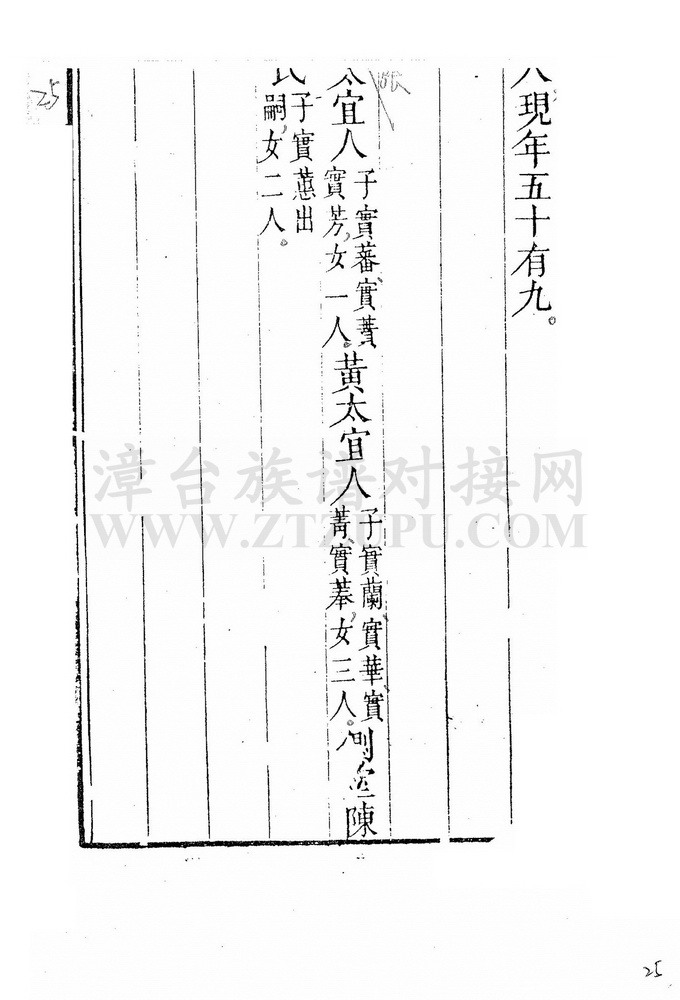 現年五十有九。
太宜人子實蕃、實蓍、實芳,女一人。黃太宜人子實蘭、實華、實菁、實菶,女三人。側室陳
氏子實蕙出嗣,女二人。
25
漳台族谱对接网
WWW.ZTZUPU.COM
25